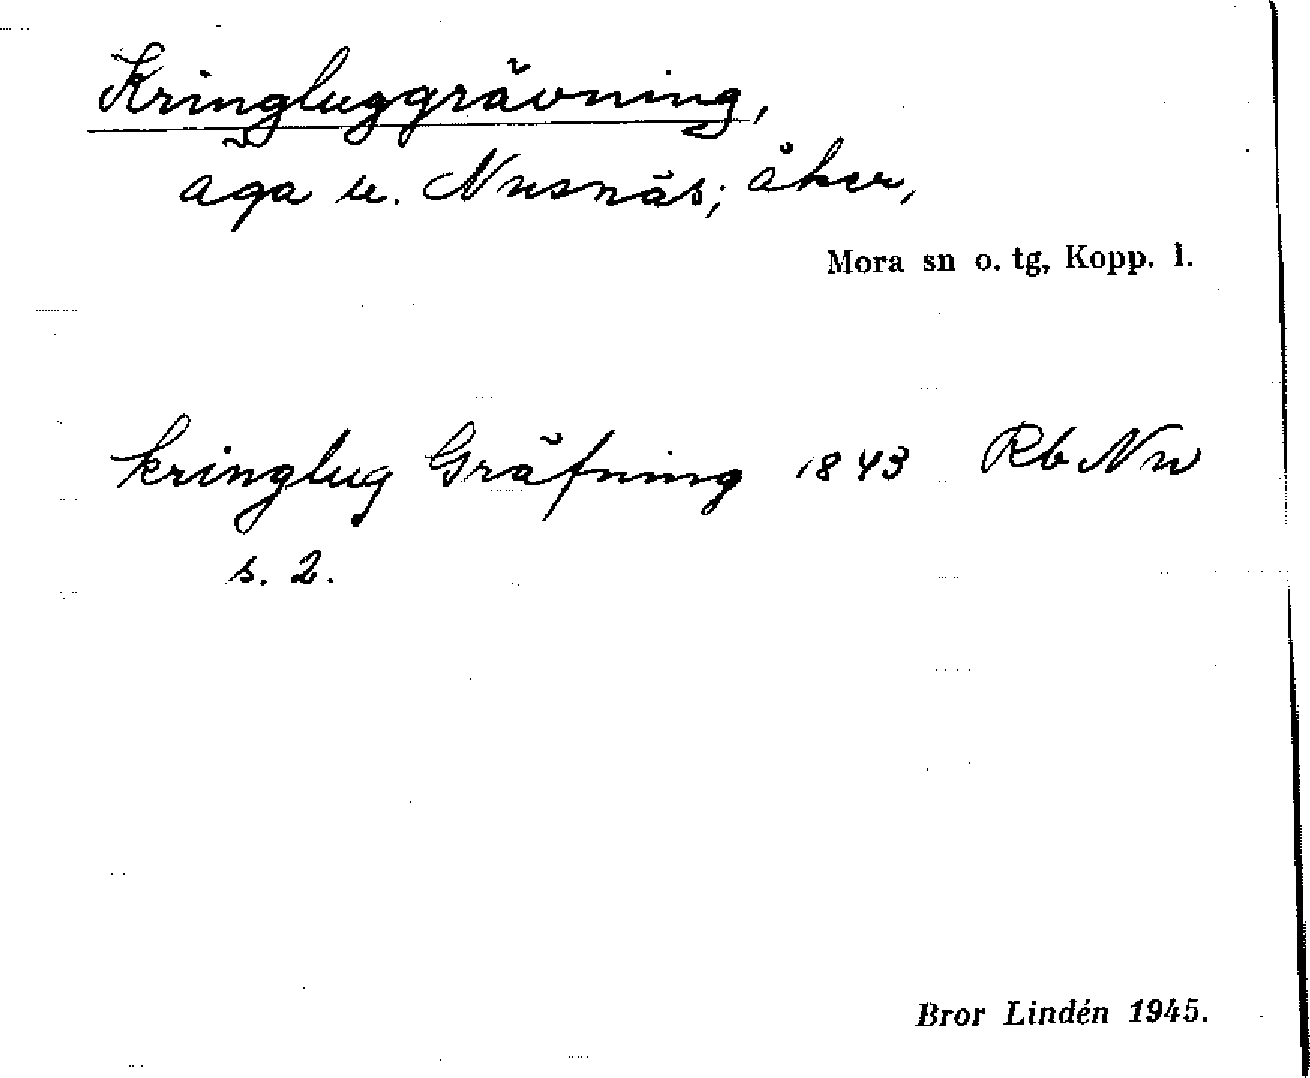 Kringluggrävning,
äga u. Nusnäs; åker,
Mora sn o. tg, Kopp. l.
kringlug Gräfning 1843 Rb Nu
s. 2.
Bror Lindén 1945.